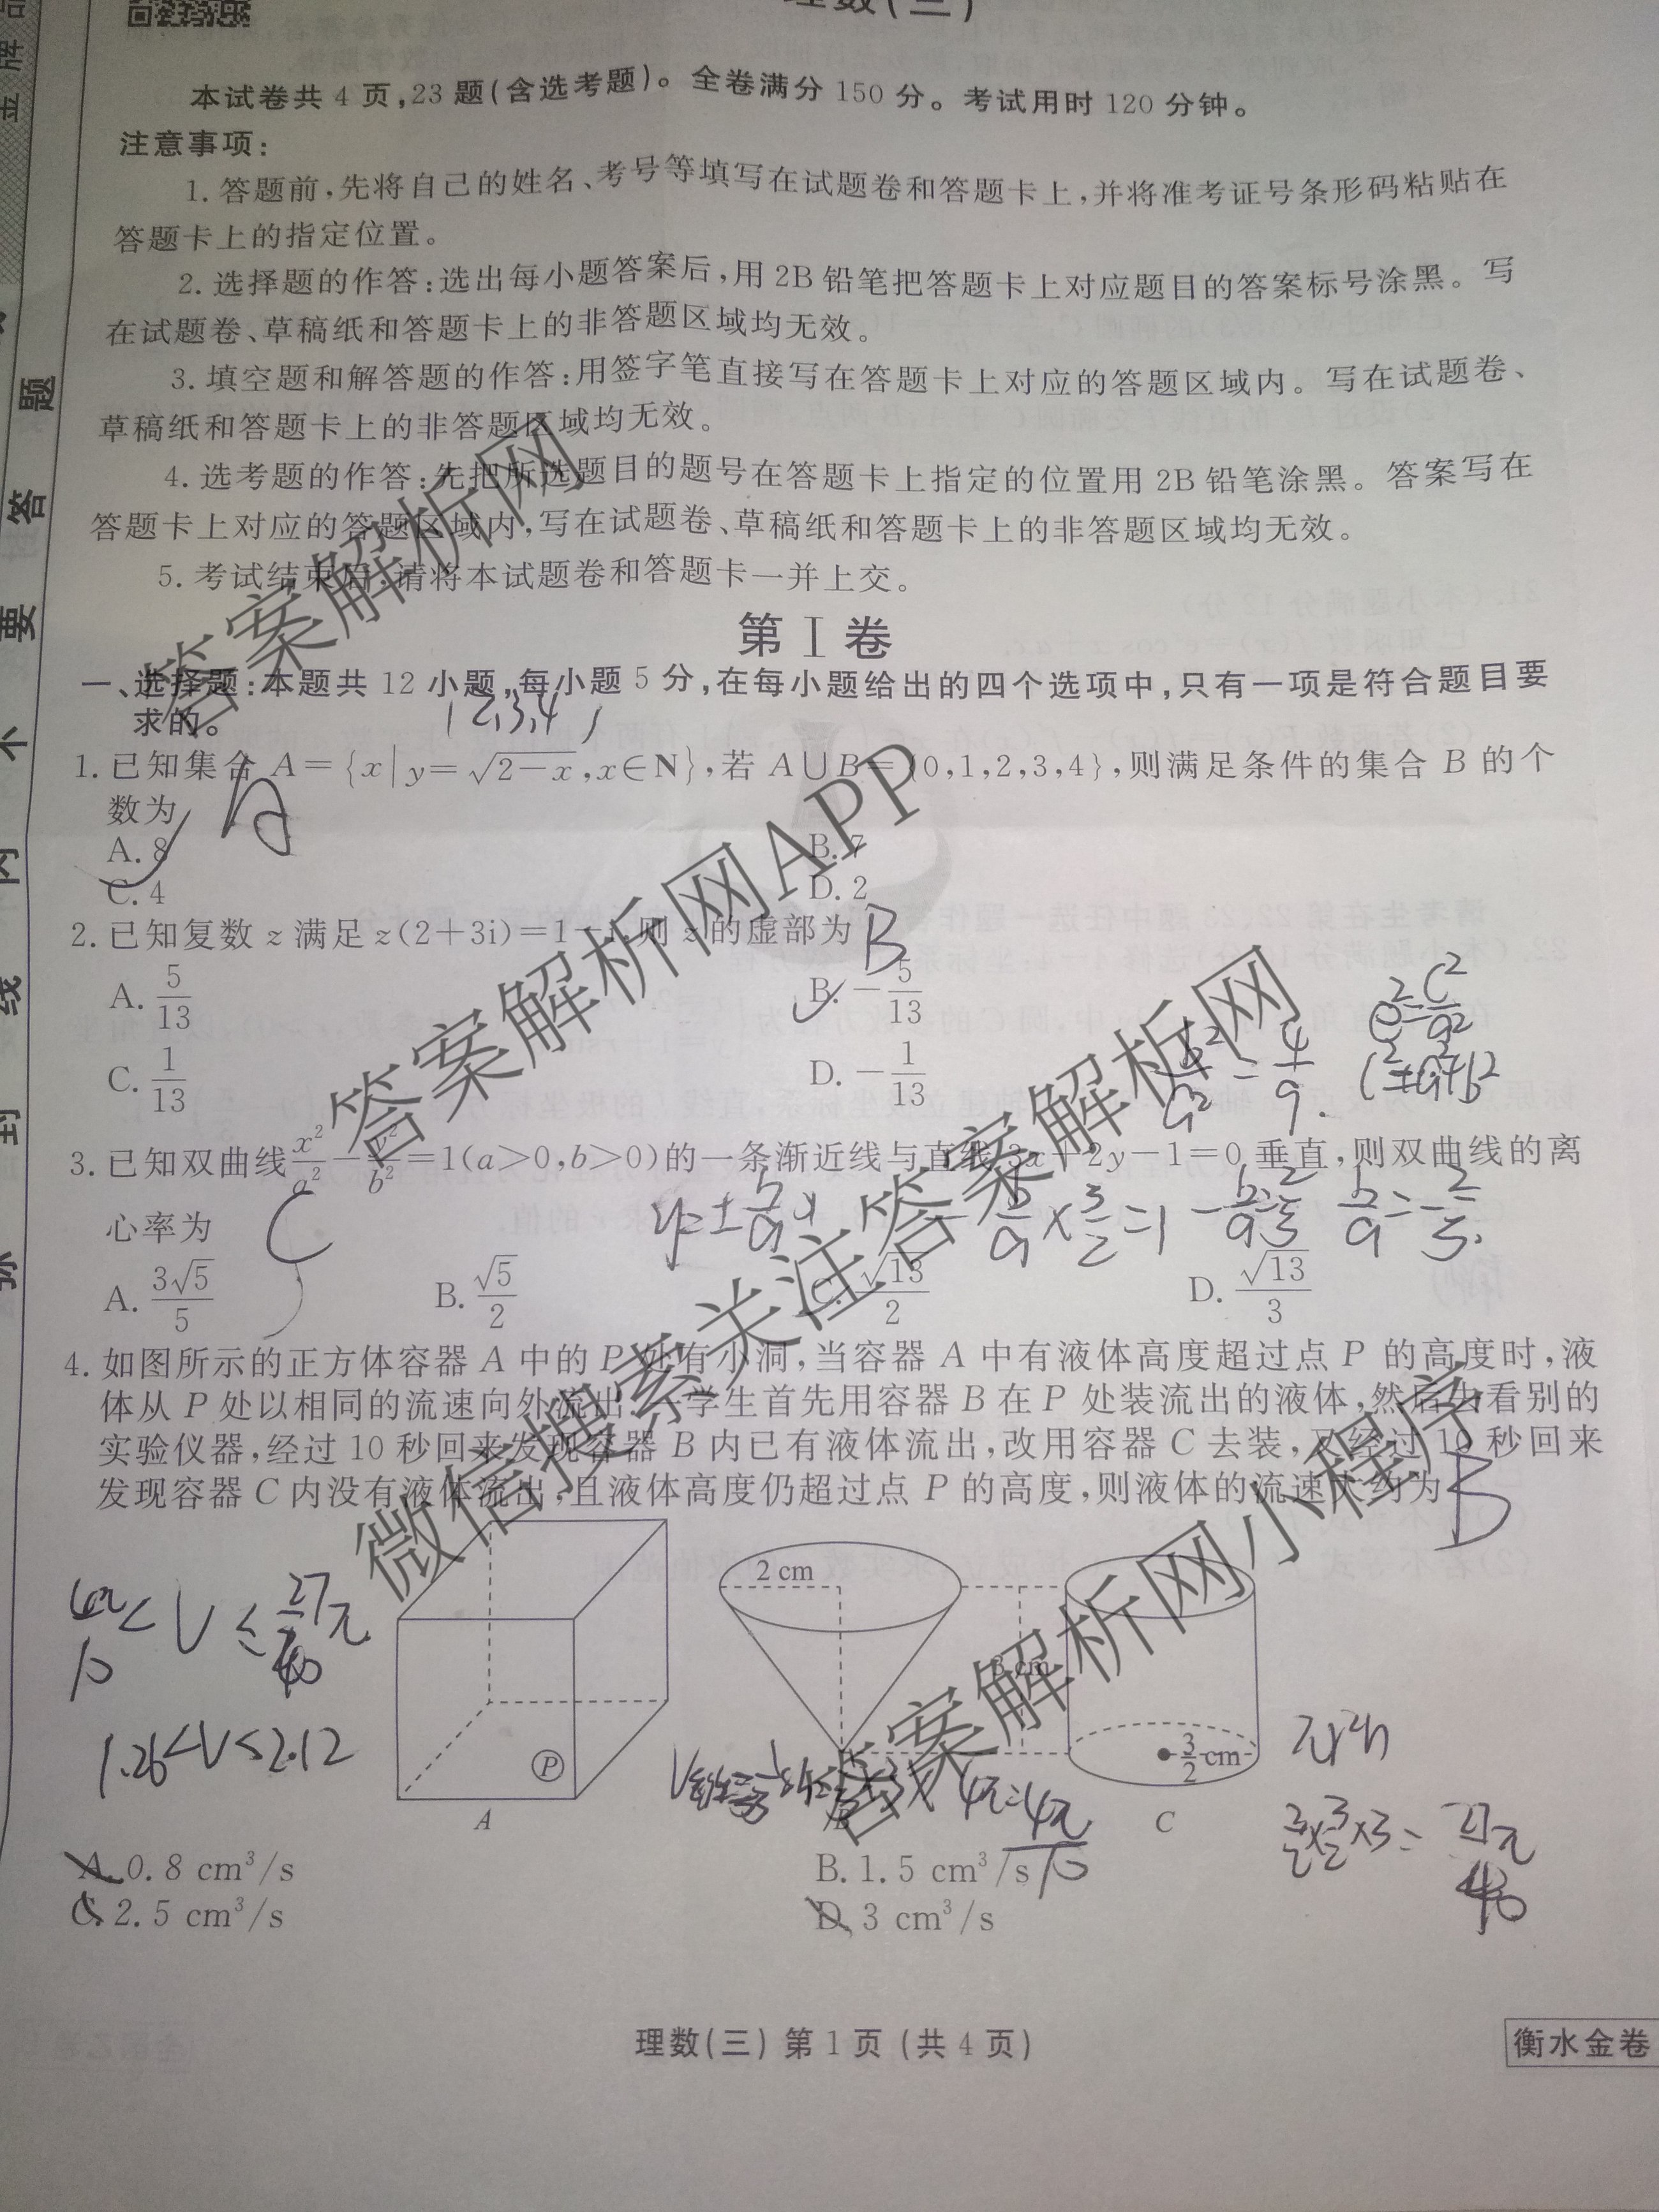 理数(三)
本试卷共 4 页,23 题(含选考题)。全卷满分 150 分。考试用时 120 分钟。
注意事项:
1. 答题前,先将自己的姓名、考号等填写在试题卷和答题卡上,并将准考证号条形码粘贴在
答题卡上的指定位置。
2. 选择题的作答:选出每小题答案后,用 2B 铅笔把答题卡上对应题目的答案标号涂黑。写
在试题卷、草稿纸和答题卡上的非答题区域均无效。
3. 填空题和解答题的作答:用签字笔直接写在答题卡上对应的答题区域内。写在试题卷、
草稿纸和答题卡上的非答题区域均无效。
4. 选考题的作答:先把所选题目的题号在答题卡上指定的位置用 2B 铅笔涂黑。答案写在
答题卡上对应的答题区域内,写在试题卷、草稿纸和答题卡上的非答题区域均无效。
5. 考试结束后,请将本试题卷和答题卡一并上交。
第 Ⅰ 卷
一、选择题:本题共 12 小题,每小题 5 分,在每小题给出的四个选项中,只有一项是符合题目要
求的。
1. 已知集合 A={x|y=√(2-x),x∈N},若 A∪B={0,1,2,3,4},则满足条件的集合 B 的个
数为 A
A. 8 B. 7
C. 4 D. 2
2. 已知复数 z 满足 z(2+3i)=1-i,则 z 的虚部为 B
A. 5/13 B. -5/13
C. 1/13 D. -1/13
b²/a² = 4/9.
e²=c²/a²
3. 已知双曲线 x²/a² - y²/b² =1(a>0,b>0)的一条渐近线与直线 3x+2y-1=0 垂直,则双曲线的离
心率为 C
y=±b/a x
b/a × 3/2 = 1
A. 3√5/5 B. √5/2 C. √13/2 D. √13/3
4. 如图所示的正方体容器 A 中的 P 处有小洞,当容器 A 中有液体高度超过点 P 的高度时,液
体从 P 处以相同的流速向外流出.一学生首先用容器 B 在 P 处装流出的液体,然后去看别的
实验仪器,经过 10 秒回来发现容器 B 内已有液体流出,改用容器 C 去装,又经过 10 秒回来
发现容器 C 内没有液体流出,且液体高度仍超过点 P 的高度,则液体的流速大约为 B
2 cm
3 cm
P
3/2 cm
A B C
4π/10 < V ≤ 27π/40
1.26<V≤2.12
πr²h
3/2×3/2×3= 27π/40
A. 0.8 cm³/s B. 1.5 cm³/s
C. 2.5 cm³/s D. 3 cm³/s
理数(三) 第 1 页 (共 4 页)
衡水金卷
题
答
要
不
内
线
封
答案解析网
答案解析网APP
微信搜索关注答案解析网
答案解析网小程序